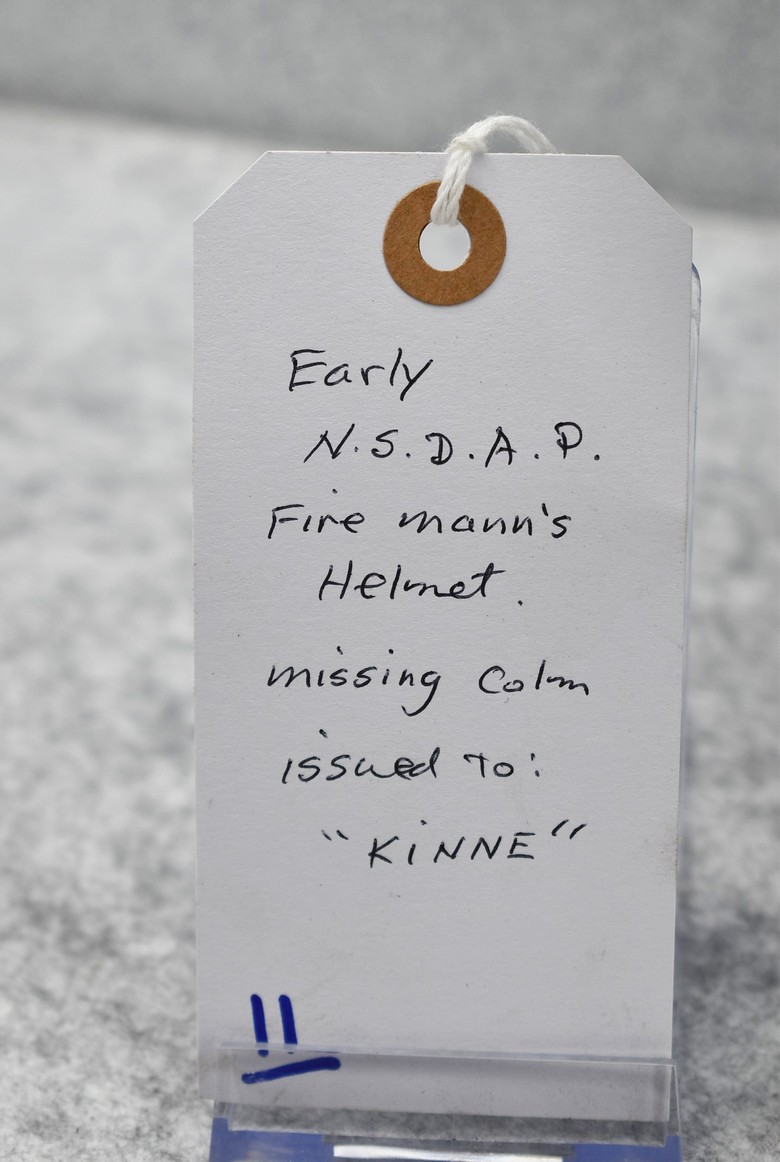 Early
N.S.D.A.P.
Fire mann's
Helmet.
missing Colm
issued To:
"KiNNE"
11